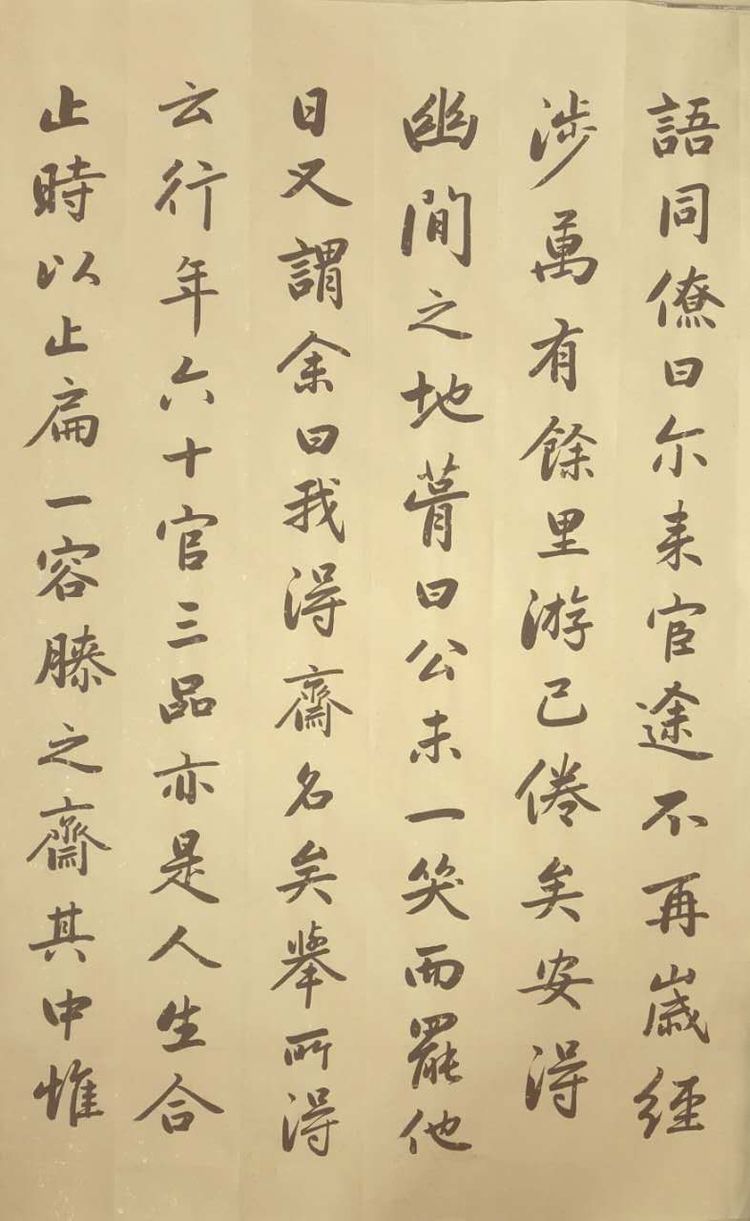 語同僚曰尔来官途不再歲經
涉萬有餘里游已倦矣安得
幽閒之地菺曰公未一笑而罷他
日又謂余曰我得齋名矣舉所得
云行年六十官三品亦是人生合
止時以止扁一容膝之齋其中惟